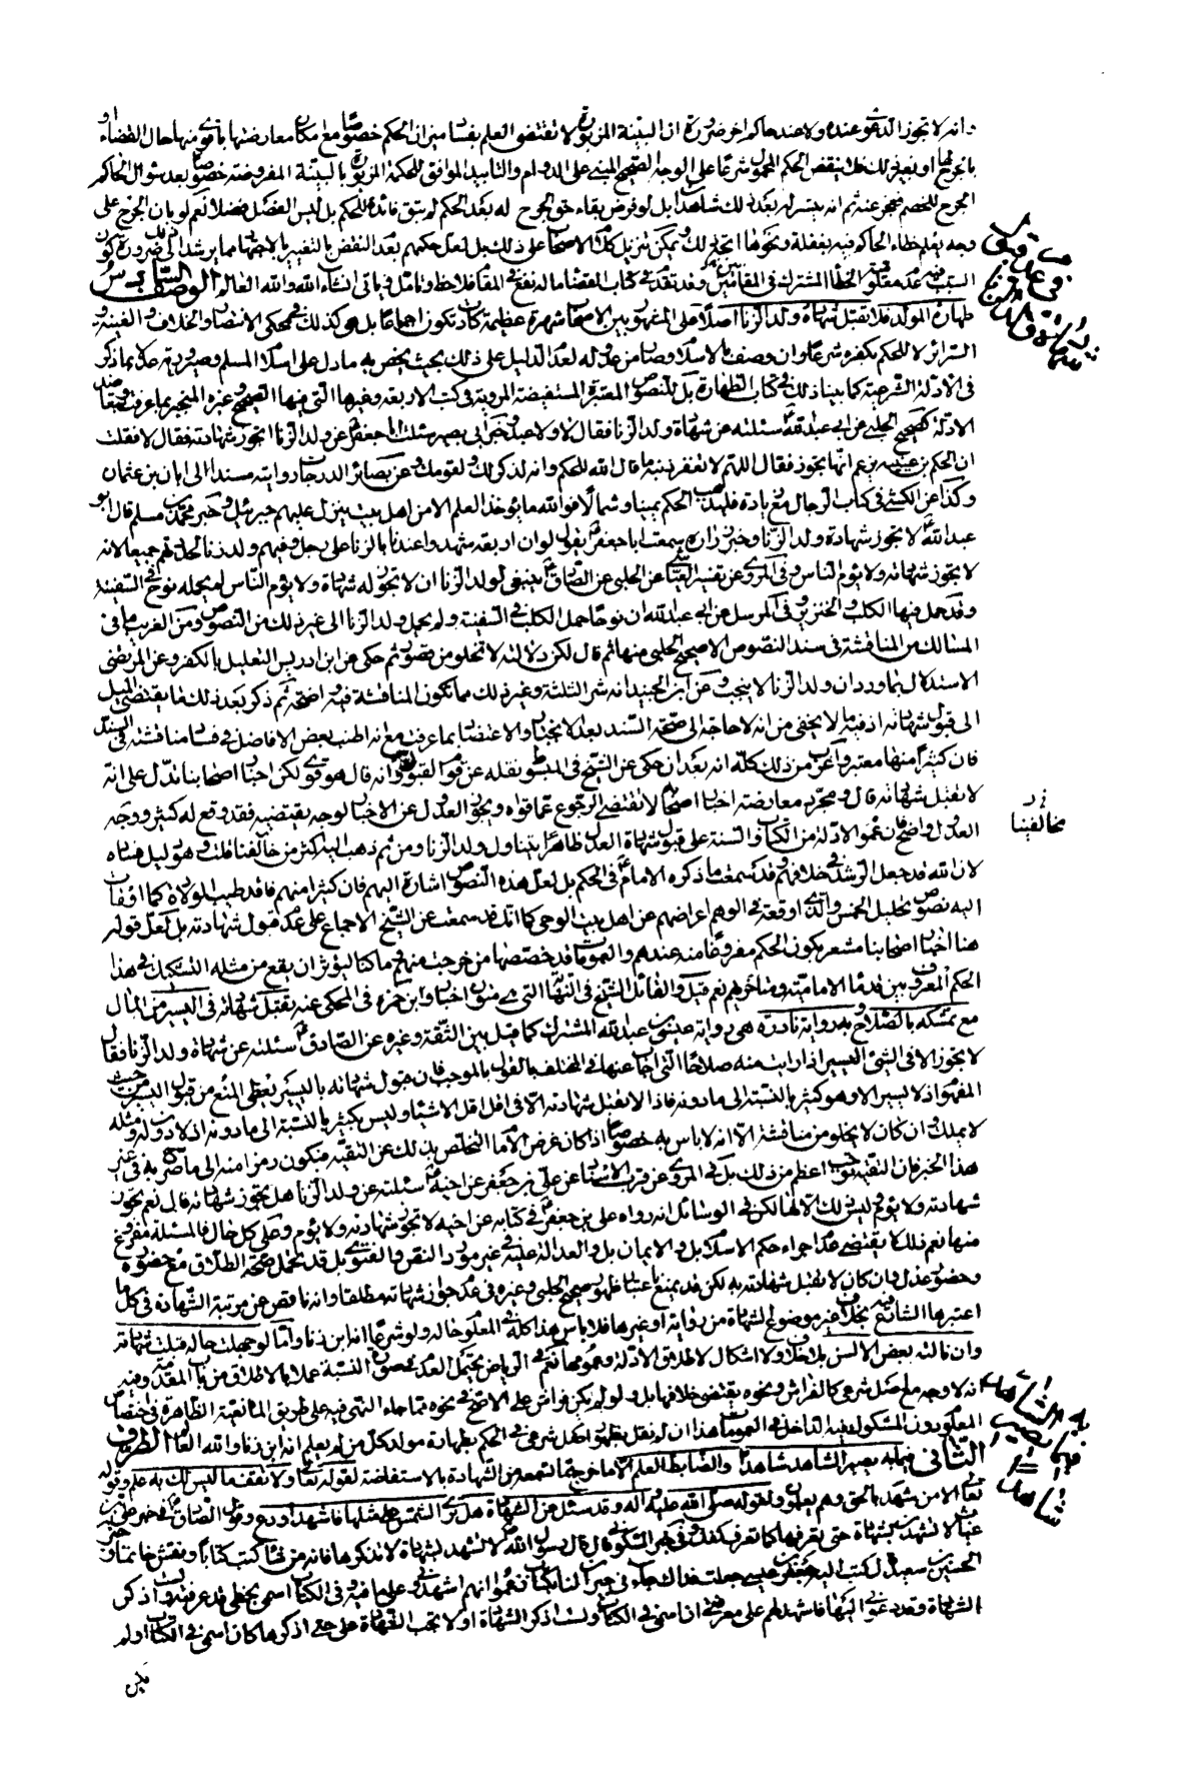 انه لا تجوز الدعوى عنده ولا عند حاكم اخر ضرورة ان البينة المزبورة لا تقتضي العلم بفساد ميزان الحكم خصوصا مع امكان معارضتها باقوى منها حال القضاء او
بالجرح لها او بغير ذلك فلا ينقض الحكم المحمول شرعا على الوجه الصحيح المبني على الدوام والتأبيد الموافق للحكمة المزبورة بالبينة المفروضة خصوصا بعد سؤال الحاكم
الجرح للخصم فعجز عنه ثم انه تيسر له بعد ذلك شاهدا بل لو فرض بقاء حق الجرح له بعد الحكم لم تبق فائدة للحكم بل ليس الفصل فصلا نعم لو بان الجرح على
وجه يعلم خطاء الحاكم فيه بغفلة ونحوها اتجه ذلك ويمكن تنزيل كلام الاصحاب على ذلك بل لعل حكمهم بعد النقض بالتغير بالاجتهاد مما يرشد الى ضرورة كون
السبب فيه عدم معلومية الخطأ المشترك بين المقامين وقد تقدم في كتاب القضاء ما له نفع في المقام فلاحظ وتأمل فيما ياتي انشاء الله والله العالم الوصف السادس
طهارة المولد فلا تقبل شهادة ولد الزنا اصلا على المشهور بين الاصحاب شهرة عظيمة كادت تكون اجماعا بل هو كذلك في محكي الانتصار والخلاف والغنية و
السرائر لا للحكم بكفره شرعا وان وصف بالاسلام وصار من عدوله لعدم الدليل على ذلك بحيث يخص به ما دل على اسلام المسلم وصيرورته عدلا بما ذكر
في الادلة الشرعية كما بينا ذلك في كتاب الطهارة بل للنصوص المعتبرة المستفيضة المروية في كتب الاربعة وغيرها التي منها الصحيح وغيره المنجبر بما عرفت
الادلة كصحيح الحلبي عن ابي عبد الله سئلته عن شهادة ولد الزنا فقال لا ولا عبد وخبر ابي بصير سئلت ابا جعفر عن ولد الزنا اتجوز شهادته فقال لا فقلت
ان الحكم بن عتيبه يزعم انها تجوز فقال اللهم لا تغفر ذنبه ما قال الله للحكم وانه لذكر لك ولقومك وعن بصائر الدرجات روايته مسندا الى ابان بن عثمان
وكذا عن الكشي في كتاب الرجال مع زيادة فليذهب الحكم يمينا وشمالا فوالله ما يؤخذ العلم الا من اهل بيت ينزل عليهم جبرئيل وخبر محمد بن مسلم قال ابو
عبد الله لا تجوز شهادة ولد الزنا وخبر زرارة سمعت ابا جعفر يقول لو ان اربعة شهدوا عندنا بالزنا على رجل وفيهم ولد زنا لحددتهم جميعا لانه
لا تجوز شهادته ولا يؤم الناس وفي المروي عن تفسير العياشي عن الحلبي عن الصادق ينبغي لولد الزنا ان لا تجوز له شهادة ولا يؤم الناس لم يحمله نوح في السفينة
وقد حمل فيها الكلب والخنزير وفي المرسل عن ابي عبد الله ان نوحا حمل الكلب في السفينة ولم يحمل ولد الزنا الى غير ذلك من النصوص ومن الغريب ما في
المسالك من المناقشة في سند النصوص الا صحيح الحلبي منها ثم قال لكن دلالته لا تخلو من قصور ثم حكى عن ابن ادريس التعليل بالكفر وعن المرتضى
الاستدلال بما ورد ان ولد الزنا لا ينجب وعن ابن الجنيد انه شر الثلثة وغير ذلك مما تكون المناقشة فيه واضحة ثم ذكر بعد ذلك ما يقتضي الميل
الى قبول شهادته اذ فيه ما لا يخفى من انه لا حاجة الى صحة السند بعد الانجبار والاعتضاد بما عرفت مع انه اطنب بعض الافاضل في فساد مناقشته في السند
فان كثيرا منها معتبر واغرب من ذلك كله انه بعد ان حكى عن الشيخ في المبسوط نقله عن قوم القبول وانه قال هو قوي لكن اخبار اصحابنا تدل على انه
لا تقبل شهادته قال ومجرد معارضته اخبار اصحابنا لا تقتضي الرجوع عما قواه ويجوز العدول عن الاخبار لوجه يقتضيه فقد وقع له كثيرا ووجه
العدول واضح فان عموم الادلة من الكتاب والسنة على قبول شهادة العدل ظاهرا يتناول ولد الزنا ومن ثم ذهب اليه اكثر من خالفنا قلت وهو دليل فساده
لان الله قد جعل الرشد في خلافهم وقد سمعت ما ذكره الامام في الحكم بل لعل هذه النصوص اشارة اليهم فان كثيرا منهم فاقد طيب الولادة كما اومأت
اليه نصوص تحليل الخمس والذي اوقعه في الوهم اعراضهم عن اهل بيت الوحي كما انك قد سمعت عن الشيخ الاجماع على عدم قبول شهادته بل لعل قوله
هنا اخبار اصحابنا مشعر بكون الحكم مفروغا منه عندهم والعمومات قد خصصتها من خرجت منهم وما كنا لنؤثر ان يقع من مثله التشكيك في هذا
الحكم المعروف بين قدماء الامامية ومتأخريهم نعم قيل والقائل الشيخ في النهاية التي هي متون اخبار وابن حمزه في المحكي عنه تقبل شهادته في اليسير من المال
مع تمسكه بالصلاح وبه رواية نادرة هي رواية عيسى بن عبد الله المشترك كما قيل بين الثقة وغيره عن الصادق سئلته عن شهادة ولد الزنا فقال
لا يجوز الا في الشئ اليسير اذا رايت منه صلاحا التي اجاب عنها في المختلف بالقول بالموجب فان قبول شهادته باليسير يعطي المنع من قبول اليسير من حيث
المفهوم اذ لا يسير الا وهو كثير بالنسبة الى ما دونه فاذا لا تقبل شهادته الا في اقل الاشياء وليس بكثير بالنسبة الى ما دونه اذ لا دون له ومثله
لا يملك وان كان لا يخلو من مناقشة الا انه لا باس به خصوصا اذ كان غرض الامام التخلص بذلك عن التقية فيكون رمزا منه الى ما صرح به في غير
هذا الخبر فان التقية توجب اعظم من ذلك بل في المروي عن قرب الاسناد عن علي بن جعفر عن اخيه سئلته عن ولد الزنا هل تجوز شهادته قال نعم تجوز
شهادته ولا يؤم وليس ذلك الا لها لكن في الوسائل انه رواه علي بن جعفر في كتابه عن اخيه لا تجوز شهادته ولا يؤم وعلى كل حال فالمسئلة مفروغ
منها نعم ذلك لا يقتضي عدم اجراء حكم الاسلام بل والايمان بل والعدالة عليه في غير مورد النص والفتوى بل قد يحتمل صحة الطلاق مع حضوره
وحضور عدل وان كان لا تقبل شهادته به لكن قد يمنع باعتبار ظهور صحيح الحلبي وغيره في عدم جواز شهادته مطلقا وانه ناقص عن مرتبة الشهادة في كل ما
اعتبرها الشارع فيه بخلاف غير موضوع الشهادة من رواية او غيرها فلا باس هذا كله في المعلوم حاله ولو شرعا انه ابن زنا واما لو جهلت حاله قبلت شهادته
وان نالته بعض الالسن بلا خلاف ولا اشكال لاطلاق الادلة وعمومها نعم في الرياض يحتمل العدم بمحض النسبة عملا بالاطلاق من باب المقدمة وفيه
انه لا وجه له مع اصل شرعي كالفراش ونحوه يقتضي خلافها بل ولو لم يكن فراش على الاصح في نحوه مما جاء النهي فيه على طريق المانعية الظاهرة في اختصاص
المعلوم دون المشكوك فيه الداخل في العمومات هذا ان لم نقل بظهور اصل شرعي في الحكم بطهارة مولد كل من لم يعلم انه ابن زنا والله العالم الطرف
الثاني فيما به يصير الشاهد شاهدا والضابط العلم الا ما خرج مما تسمعه من الشهادة بالاستفاضة لقوله تعالى ولا تقف ما ليس لك به علم وقوله
تعالى الا من شهد بالحق وهم يعلمون ولقوله صلى الله عليه وآله وقد سئل عن الشهادة هل ترى الشمس على مثلها فاشهد او دع وقول الصادق في خبر علي بن
غياث لا تشهدن بشهادة حتى تعرفها كما تعرف كفك وفي خبر السكوني قال قال رسول الله لا تشهد بشهادة لا تذكرها فانه من شاء كتب كتابا ونقش خاتما وفي خبر
الحسين بن سعيد قال كتب اليه جعفر بن عيسى جعلت فداك جاءني جيران لنا بكتاب زعموا انهم اشهدوني على ما فيه وفي الكتاب اسمي بخطي قد عرفته ولست اذكر
الشهادة وقد دعوني اليها فاشهد لهم على معرفتي ان اسمي في الكتاب ولست اذكر الشهادة او لا تجب الشهادة علي حتى اذكرها كان اسمي في الكتاب او لم
في عدم قبول شهادة ولد الزنا
مخالفينا
فيما يصير به الشاهد شاهدا